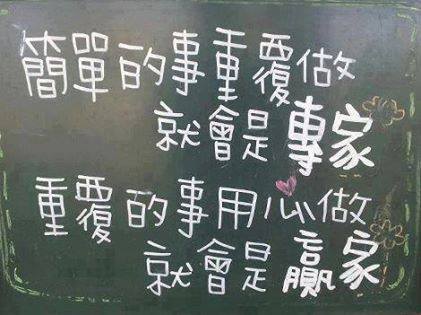 簡單的事重覆做
就會是專家
重覆的事用心做
就會是贏家